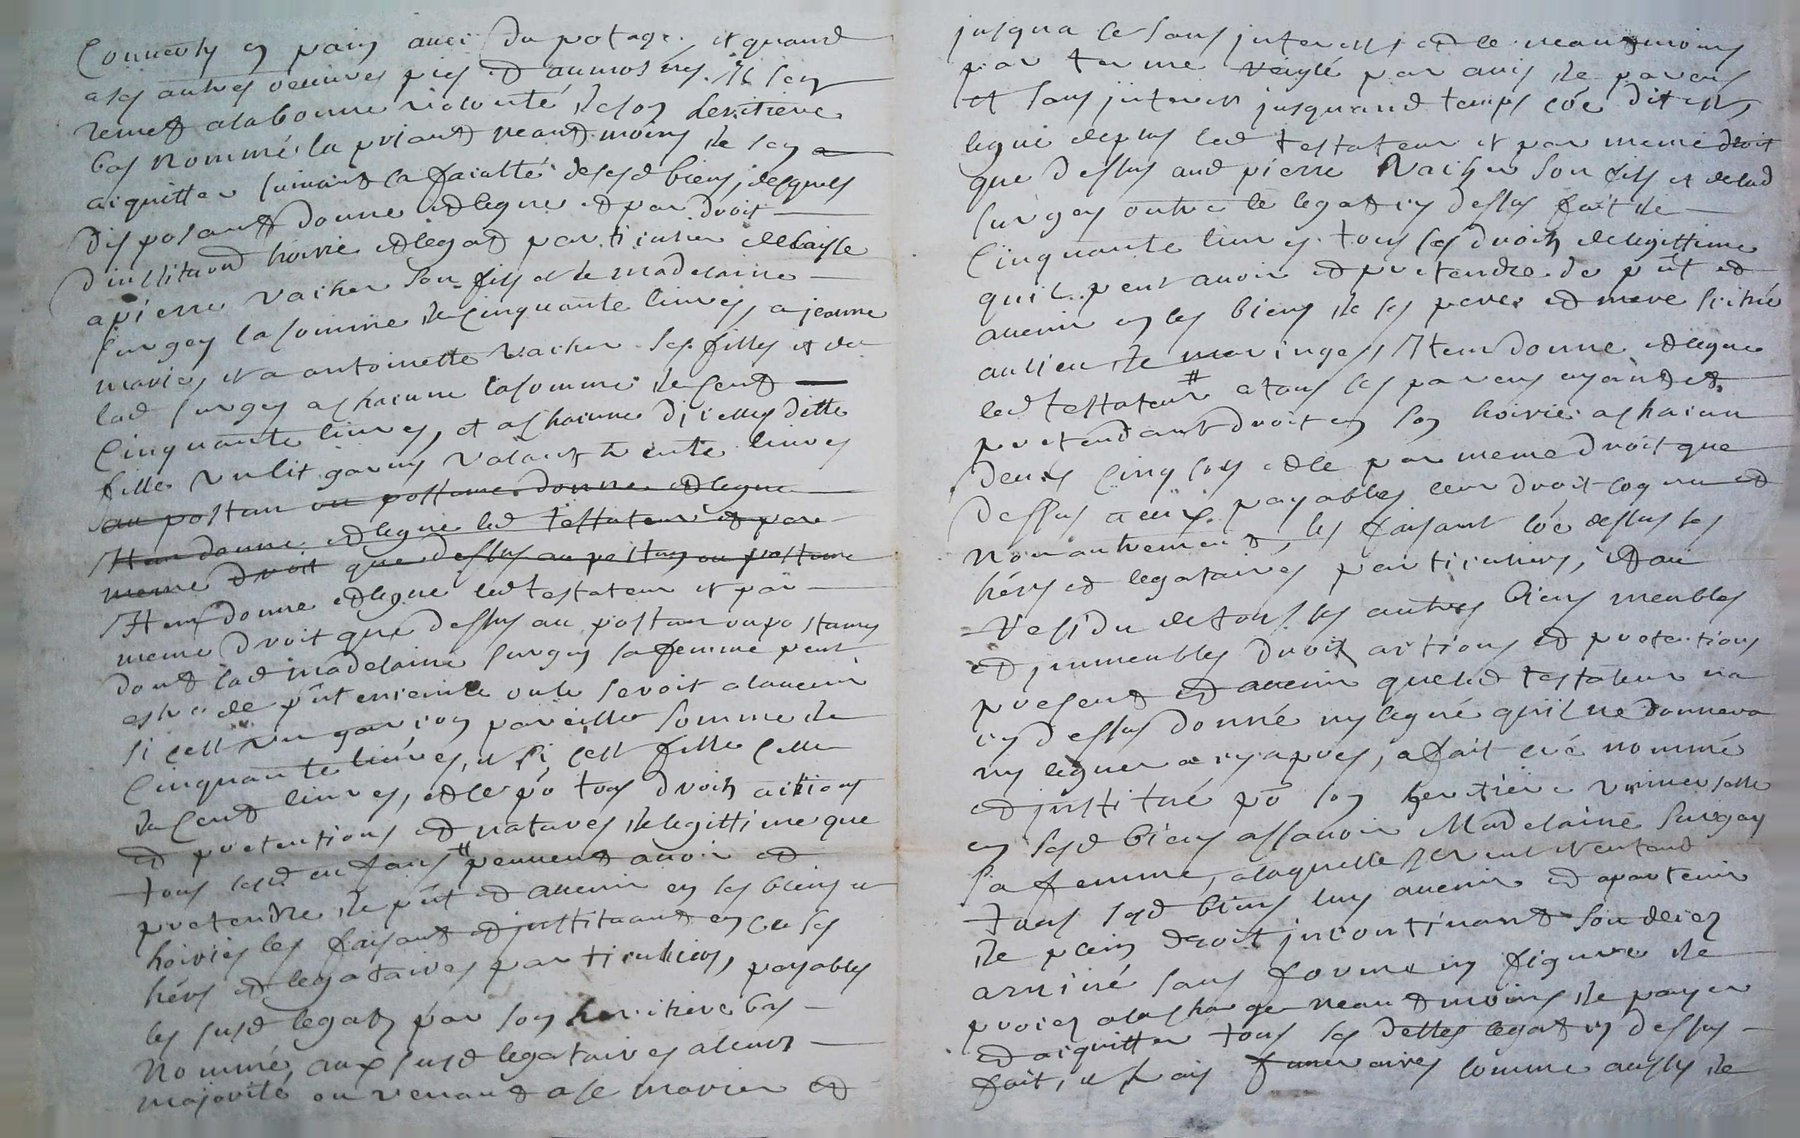 Convertis en pain avec du potage, et quand
a ses autres oeuvres pies et aumosnes, il sen
remet a la bonne volonté de son heritiere
bas nommé la priant neantmoins de sen
aiquitter suivant la faculté de sesd biens, desquels
disposant donne et legue et par droit
dinstituon hoirie et legat particulier delaisse
a pierre vacher son fils et de madelaine
surgey la somme de Cinquante livres, a jeanne
marie, et a antoinette vacher ses filles et de
lad surgey a chacune la somme de Cent
Cinquante livres, et a chacune diicelles ditte
filles un lit garny valant trente livres
au postum ou postumes donne et legue
Item donne et legue led testateur et par
meme droit que dessus au postum ou postume
Item donne et legue led testateur et par
meme droit que dessus au postum ou postumes
dont lad madelaine surgey sa femme peut
estre de pnt enceinte ou le seroit a lavenir
si cest un garçon pareille somme de
Cinquante livres, et si cest fille celle
de Cent livres, et ce po tous droits actions
et pretentions et natures de legittime que
tous sesd enfans # peuvent avoir et
pretendre de pnt et avenir en ses biens et
hoiries les faisant et instituant en ce ses
hers et legataires particuliers, payables
les susd legats par son heritiere bas
nommé, aux susd legataires a leur
majorité ou venant a se marier et
jusqua ce sans interests et ce neantmoins
par terme reiglé par avis de parens
et sans interest jusquaud temps, coe dit est,
legue de plus led testateur et par meme droit
que dessus aud pierre Vacher son fils et de lad
surgey outre le legat cy dessus fait de
Cinquante livres tous ses droits de legittime
quil peut avoir et pretendre de pnt et
avenir en les biens de ses pere et mere scitué
au lieu de maringes, Item donne et legue
led testateur # a tous ses parens ayant et
pretendant droit en son hoirie a chacun
deux Cinq sols et ce par meme droit que
dessus a eux payables leur droit cognu et
non autrement, les faisant coe dessus ses
hers et legataires particuliers, et au
residu de tous ses autres biens meubles
et immeubles droits actions et pretentions
present et avenir que led testateur na
cy dessus donné ny legué quil ne donnera
ny leguera cy apres, a fait cré nommé
et institué po son heritiere universelle
en sesd biens assavoir Madelaine Surgey
sa femme, a laquelle il veut et entend
tous sesd biens luy avenir et apartenir
de plein droit incontinant son deces
arrivé sans forme ny figure de
proces a la charge neantmoins de payer
et aiquitter tous ses dettes legat cy dessus
fait, et frais funeraires comme aussy de